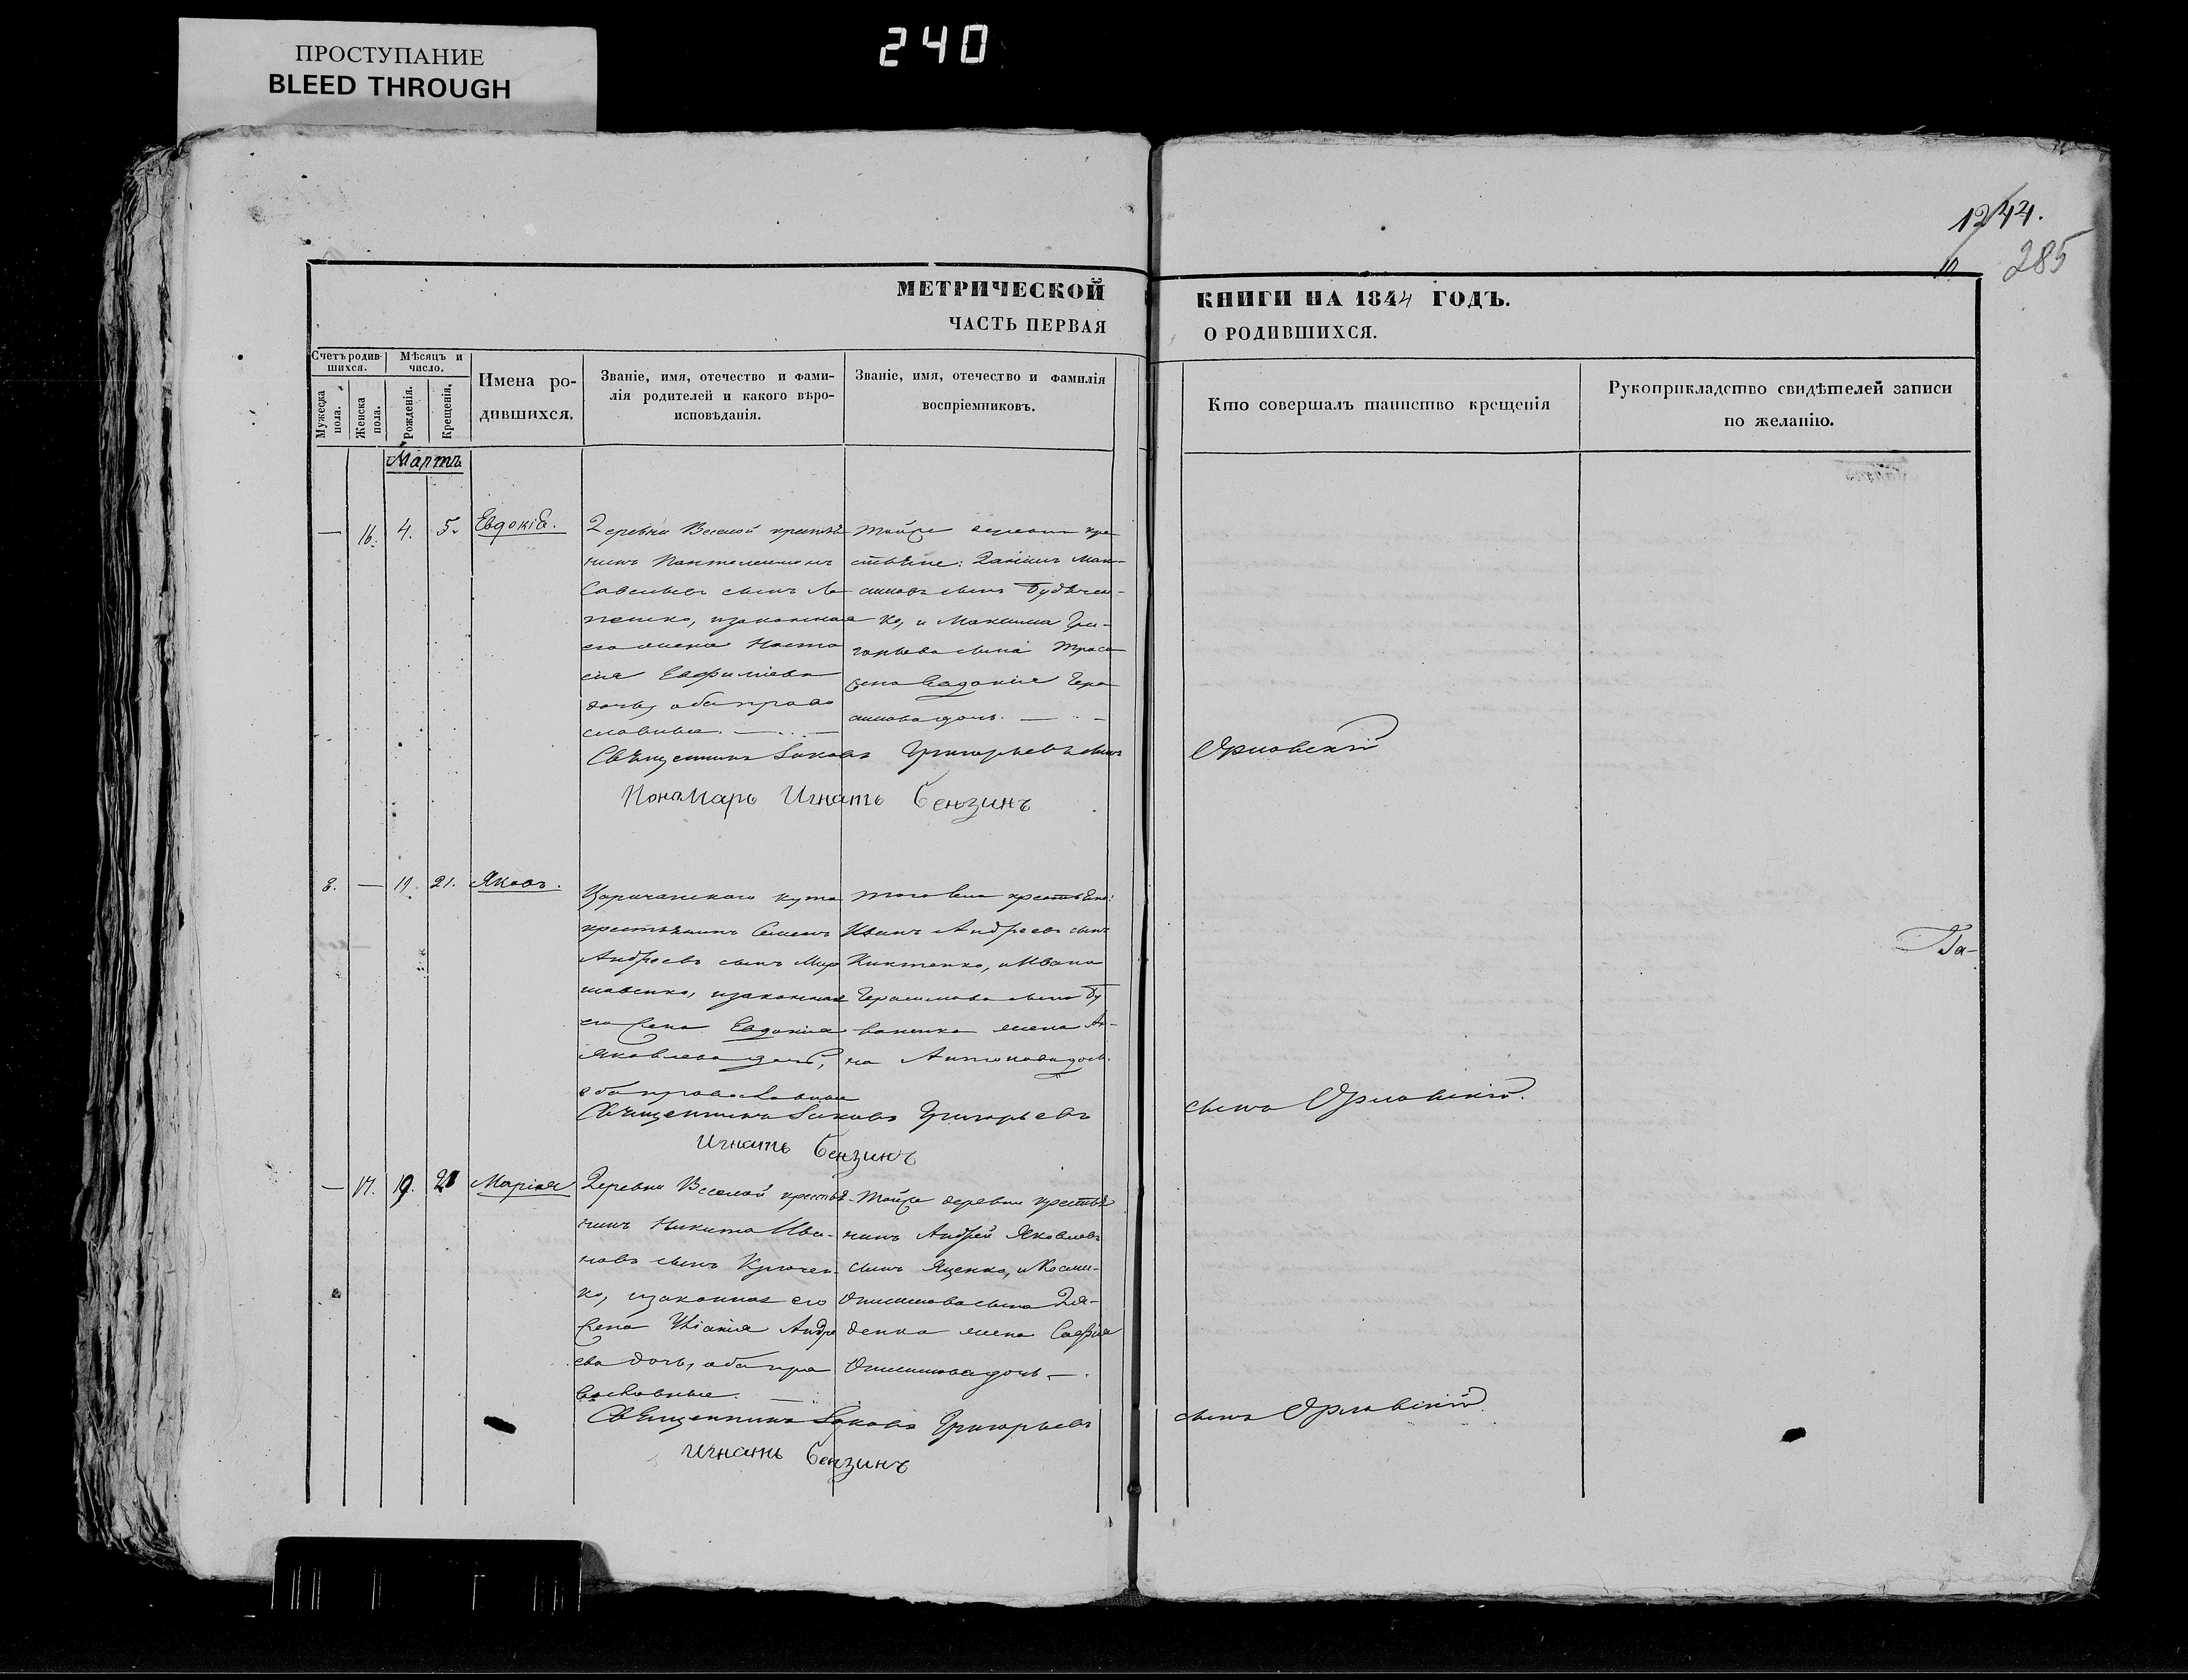 ПРОСТУПАНИЕ
BLEED THROUGH
240
1244.
285
МЕТРИЧЕСКОЙ
ЧАСТЬ ПЕРВАЯ
КНИГИ НА 1844 ГОДЪ.
О РОДИВШИХСЯ.
Счетъ родив-
шихся.
Мужеска
пола.
Женска
пола.
Мѣсяцъ и
число.
Рожденія.
Крещенія.
Имена ро-
дившихся.
Званіе, имя, отечество и фами-
лія родителей и какого вѣро-
исповѣданія.
Званіе, имя, отечество и фамилія
воспріемниковъ.
Кто совершалъ таинство крещенія
Рукоприкладство свидѣтелей записи
по желанію.
Мартъ
— 16. 4. 5. Евдокіѣ.
Деревни Веселой крестья
нинъ Пантелеимонъ
Савельевъ сынъ
изаконная
его жена Наста
сія Евфиміева
дочь, оба право
славные.
Тойже деревни кре
стьяне: Даніилъ Мак-
симовъ сынъ
ко, и Максима Гри-
горьева сына
жена Евдокія Гера
симова дочь.
Священникъ Іаковъ Григорьевъ сынъ Орловскій
Понамарь Игнатъ Бензинъ
8. — 19. 21. Яковъ.
Царичанского кута
крестьянинъ Семенъ
Андреевъ сынъ Миро
шавенко, изаконная
его жена Евдокія
Яковлева дочь,
оба православные
того села крестьяне:
Иванъ Андреевъ сынъ
Никтенко, и Ивана
Герасимова сына
жена Ан-
на Антонова дочь.
Та-
Священникъ Іаковъ Григорьевъ сынъ Орловскій.
Игнатъ Бензинъ
— 17. 19. 21 Марія
Деревни Веселой крестья
нинъ Никита Ива-
новъ сынъ Крючен-
ко, изаконная его
жена Уліанія Андре
ева дочь, оба пра
вославные.
Тойже деревни крестья
нинъ Андрей Яковлевъ
сынъ Яценко, и Косми-
сына Дя-
денка жена Софія
дочь —.
Священникъ Іаковъ Григорьевъ сынъ Орловскій.
Игнатъ Бензинъ